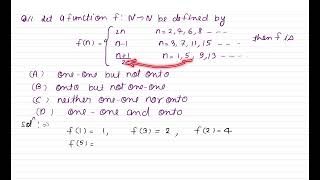 Q:1 Let a function f: N→N be defined by
f(n) = { 2n n = 2, 4, 6, 8 ----
n-1 n = 3, 7, 11, 15 -----
n+1/2 n = 1, 5, 9, 13 ----
then f is
(A) one-one but not onto
(B) onto but not one-one
(C) neither one-one nor onto
(D) one-one and onto
Solⁿ :⇒
f(1) = 1, f(3) = 2, f(2) = 4
f(5) =